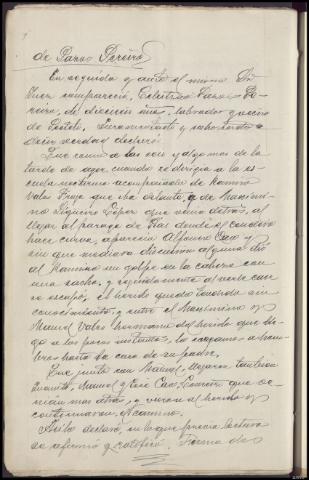 de Pazos Pereira
En seguida y ante el mismo Sr.
Juez compareció, Celestino Pazos Pe-
reira, de dieciseis años, labrador y vecino
de                 juramentado y exhortado a
decir verdad declaró:
Que como a las seis y algo mas de la
tarde de ayer, cuando se dirigia a la es-
cuela nocturna acompañado de Ramiro
Valas           que iba delante, y de Maximi-
no Piqueiro Lopez que venia detrás, al
llegar al paraje de        donde el camino
hace curva, apareció Alfonso Cao y
sin que mediara discusion alguna dió
al Ramiro un golpe en la cabeza con
una      , y seguidamente al verle caer
se escapó; el herido quedó tendido sin
conocimiento, y entre el Maximino y
Manuel Valas hermano del herido que lle-
gó a los pocos instantes, lo cogieron y
       hasta la casa de su padre.
Que junto con Manuel, llegaron tambien
         Manuel y José Cao        que ve-
nian mas atrás, y vieron al herido y
continuaron el camino.
Asi lo declaró, en lo que previa lectura
se afirmó y ratificó. Firma des-